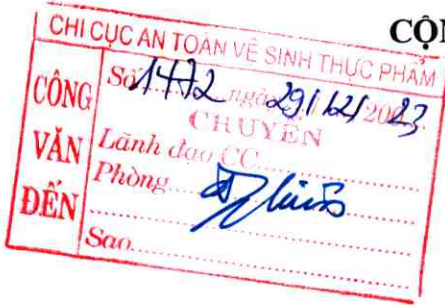 CỘN
CHI CỤC AN TOÀN VỆ SINH THỰC PHẨM
CÔNG VĂN ĐẾN
Số 1472 ngày 29/12/2023
CHUYỂN
Lãnh đạo CC
Phòng
Sao